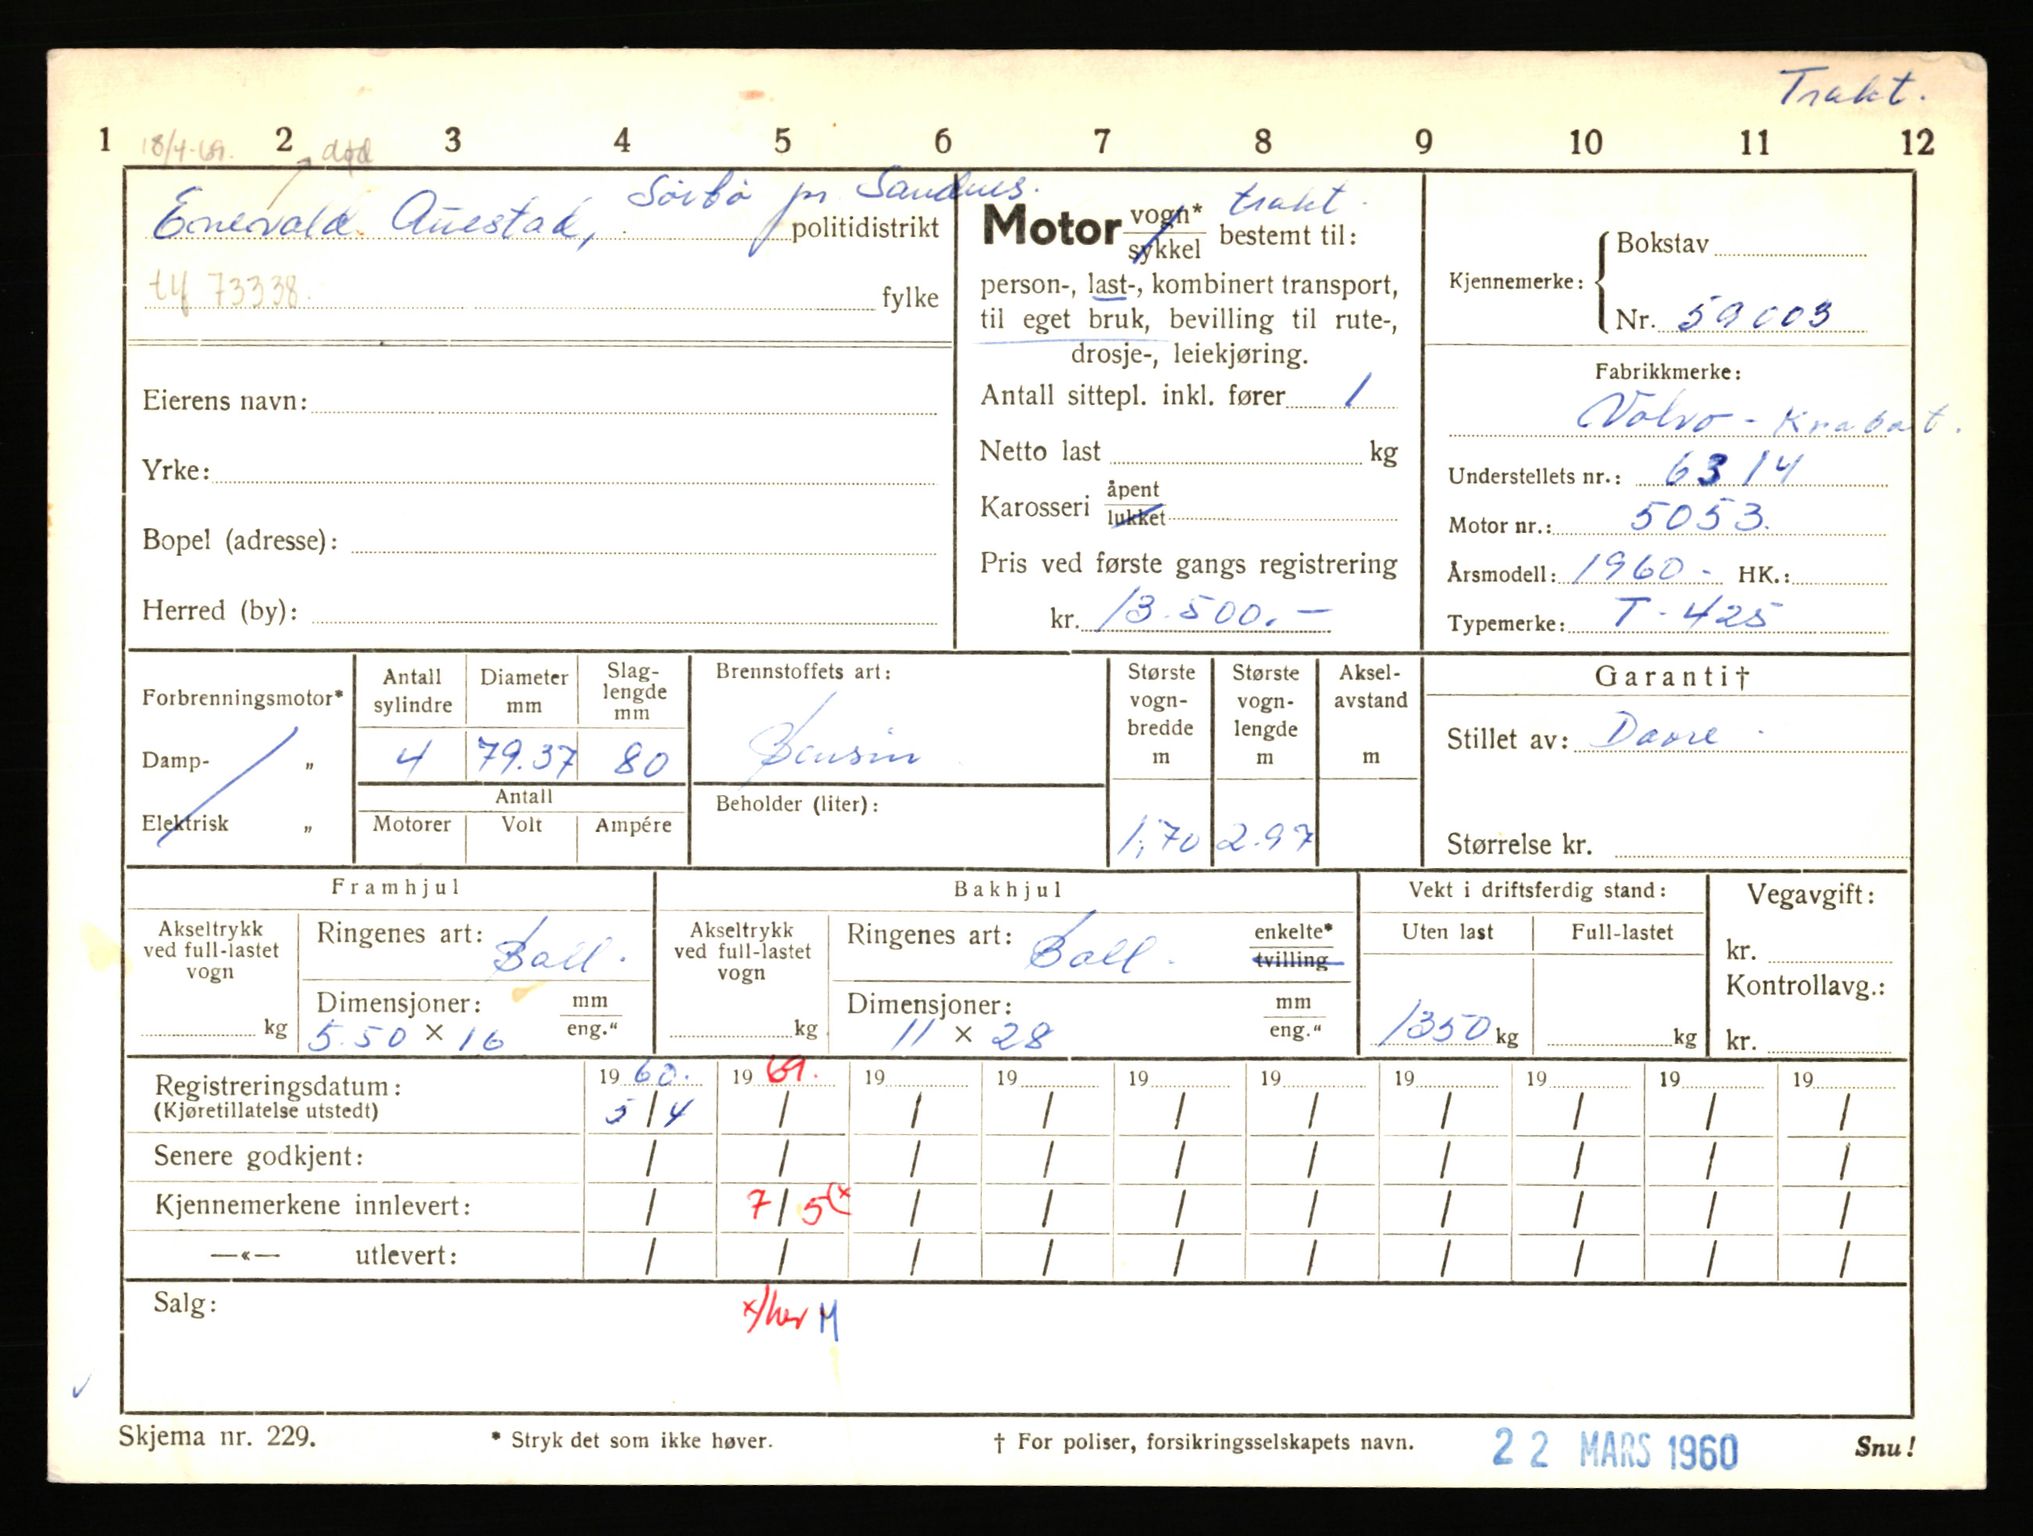 Trakt.
1 2 3 4 5 6 7 8 9 10 11 12
18/4-69. død
Enevald Auestad, Sørbø pr. Sandnes. politidistrikt
tlf 73338. fylke
Eierens navn:
Yrke:
Bopel (adresse):
Herred (by):
Motor vogn* trakt.
sykkel bestemt til:
person-, last-, kombinert transport,
til eget bruk, bevilling til rute-,
drosje-, leiekjøring.
Antall sittepl. inkl. fører 1
Netto last kg
Karosseri åpent
lukket
Pris ved første gangs registrering
kr. 13.500.-
Kjennemerke: Bokstav
Nr. 59003
Fabrikkmerke:
Volvo - Krabat.
Understellets nr.: 6314
Motor nr.: 5053.
Årsmodell: 1960- HK.:
Typemerke: T-425
Forbrenningsmotor*
Damp- „
Elektrisk „
Antall sylindre
4
Diameter mm
79.37
Slag-lengde mm
80
Antall
Motorer Volt Ampére
Brennstoffets art:
Bensin
Beholder (liter):
Største vogn-bredde m
1,70
Største vogn-lengde m
2.97
Aksel-avstand m
Garanti†
Stillet av:
Størrelse kr.
Framhjul
Akseltrykk ved full-lastet vogn
kg
Ringenes art: Ball.
Dimensjoner: mm
5.50 × 16 eng."
Bakhjul
Akseltrykk ved full-lastet vogn
kg
Ringenes art: Ball. enkelte*
tvilling
Dimensjoner: mm
11 × 28 eng."
Vekt i driftsferdig stand:
Uten last Full-lastet
1350 kg kg
Vegavgift:
kr.
Kontrollavg.:
kr.
Registreringsdatum: 19 60. 19 69. 19 19 19 19 19 19 19 19
(Kjøretillatelse utstedt) 5/4 / / / / / / / / /
Senere godkjent: / / / / / / / / / /
Kjennemerkene innlevert: / 7/5(x / / / / / / / /
—«— utlevert: / / / / / / / / / /
Salg: x/her M
Skjema nr. 229. * Stryk det som ikke høver. † For poliser, forsikringsselskapets navn. 22 MARS 1960 Snu!